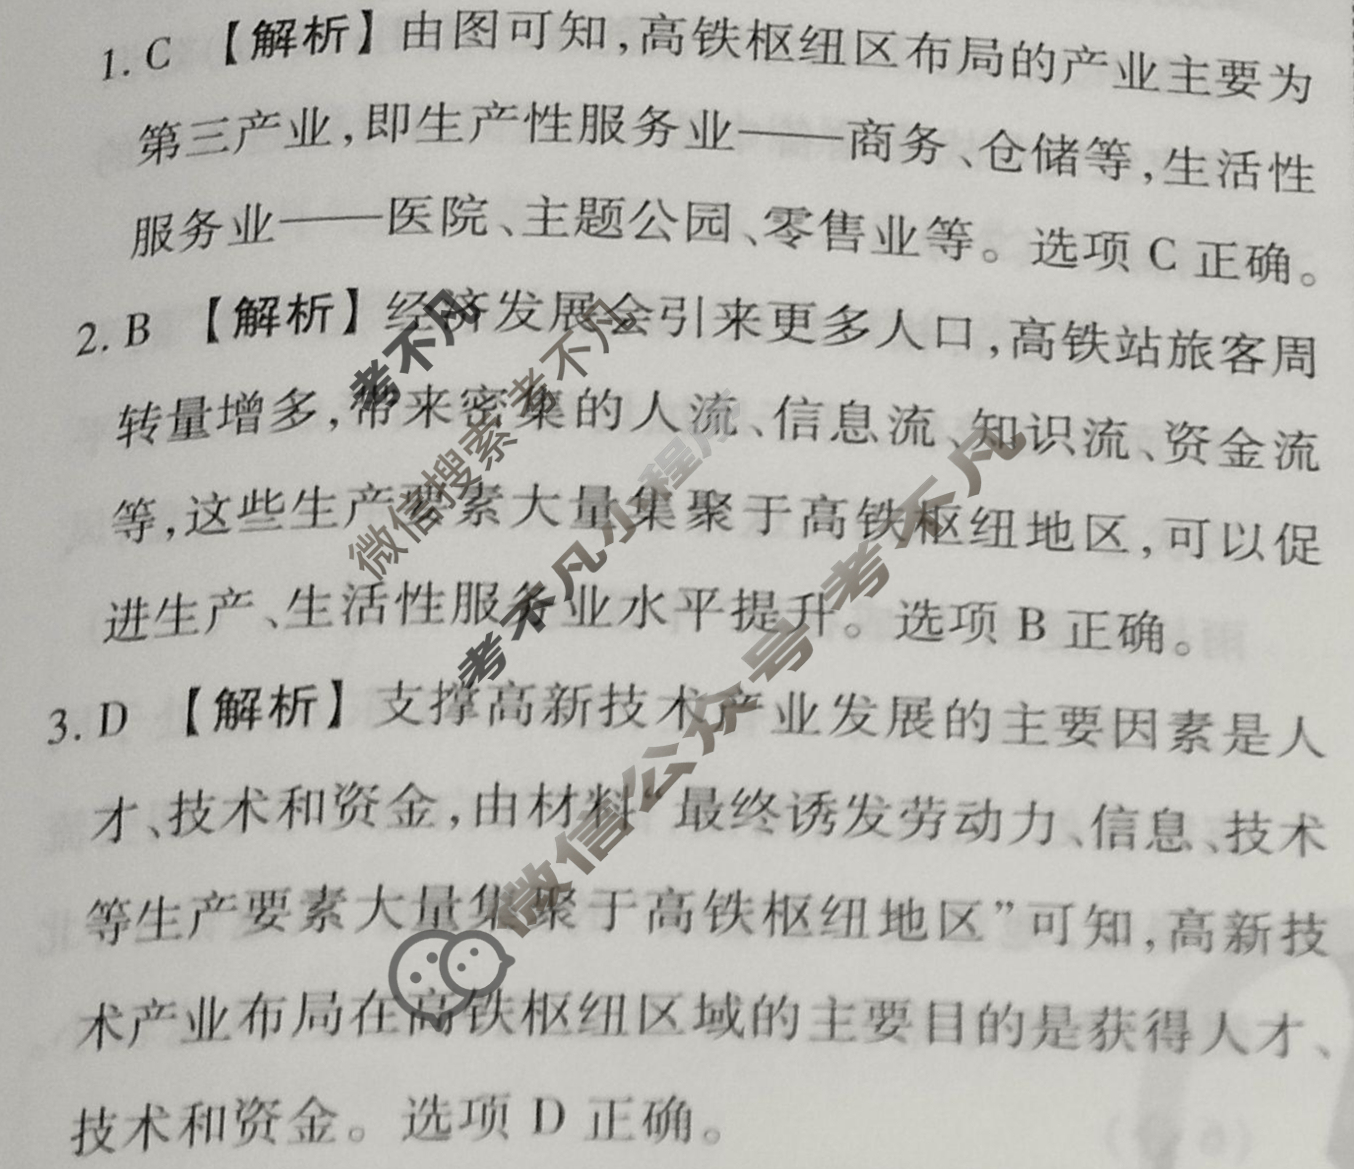 1. C 【解析】由图可知,高铁枢纽区布局的产业主要为
第三产业,即生产性服务业——商务、仓储等,生活性
服务业——医院、主题公园、零售业等。选项 C 正确。
2. B 【解析】经济发展会引来更多人口,高铁站旅客周
转量增多,带来密集的人流、信息流、知识流、资金流
等,这些生产要素大量集聚于高铁枢纽地区,可以促
进生产、生活性服务业水平提升。选项 B 正确。
3. D 【解析】支撑高新技术产业发展的主要因素是人
才、技术和资金,由材料“最终诱发劳动力、信息、技术
等生产要素大量集聚于高铁枢纽地区”可知,高新技
术产业布局在高铁枢纽区域的主要目的是获得人才、
技术和资金。选项 D 正确。
考不凡
微信搜索考不凡
考不凡小程序
微信公众号考不凡